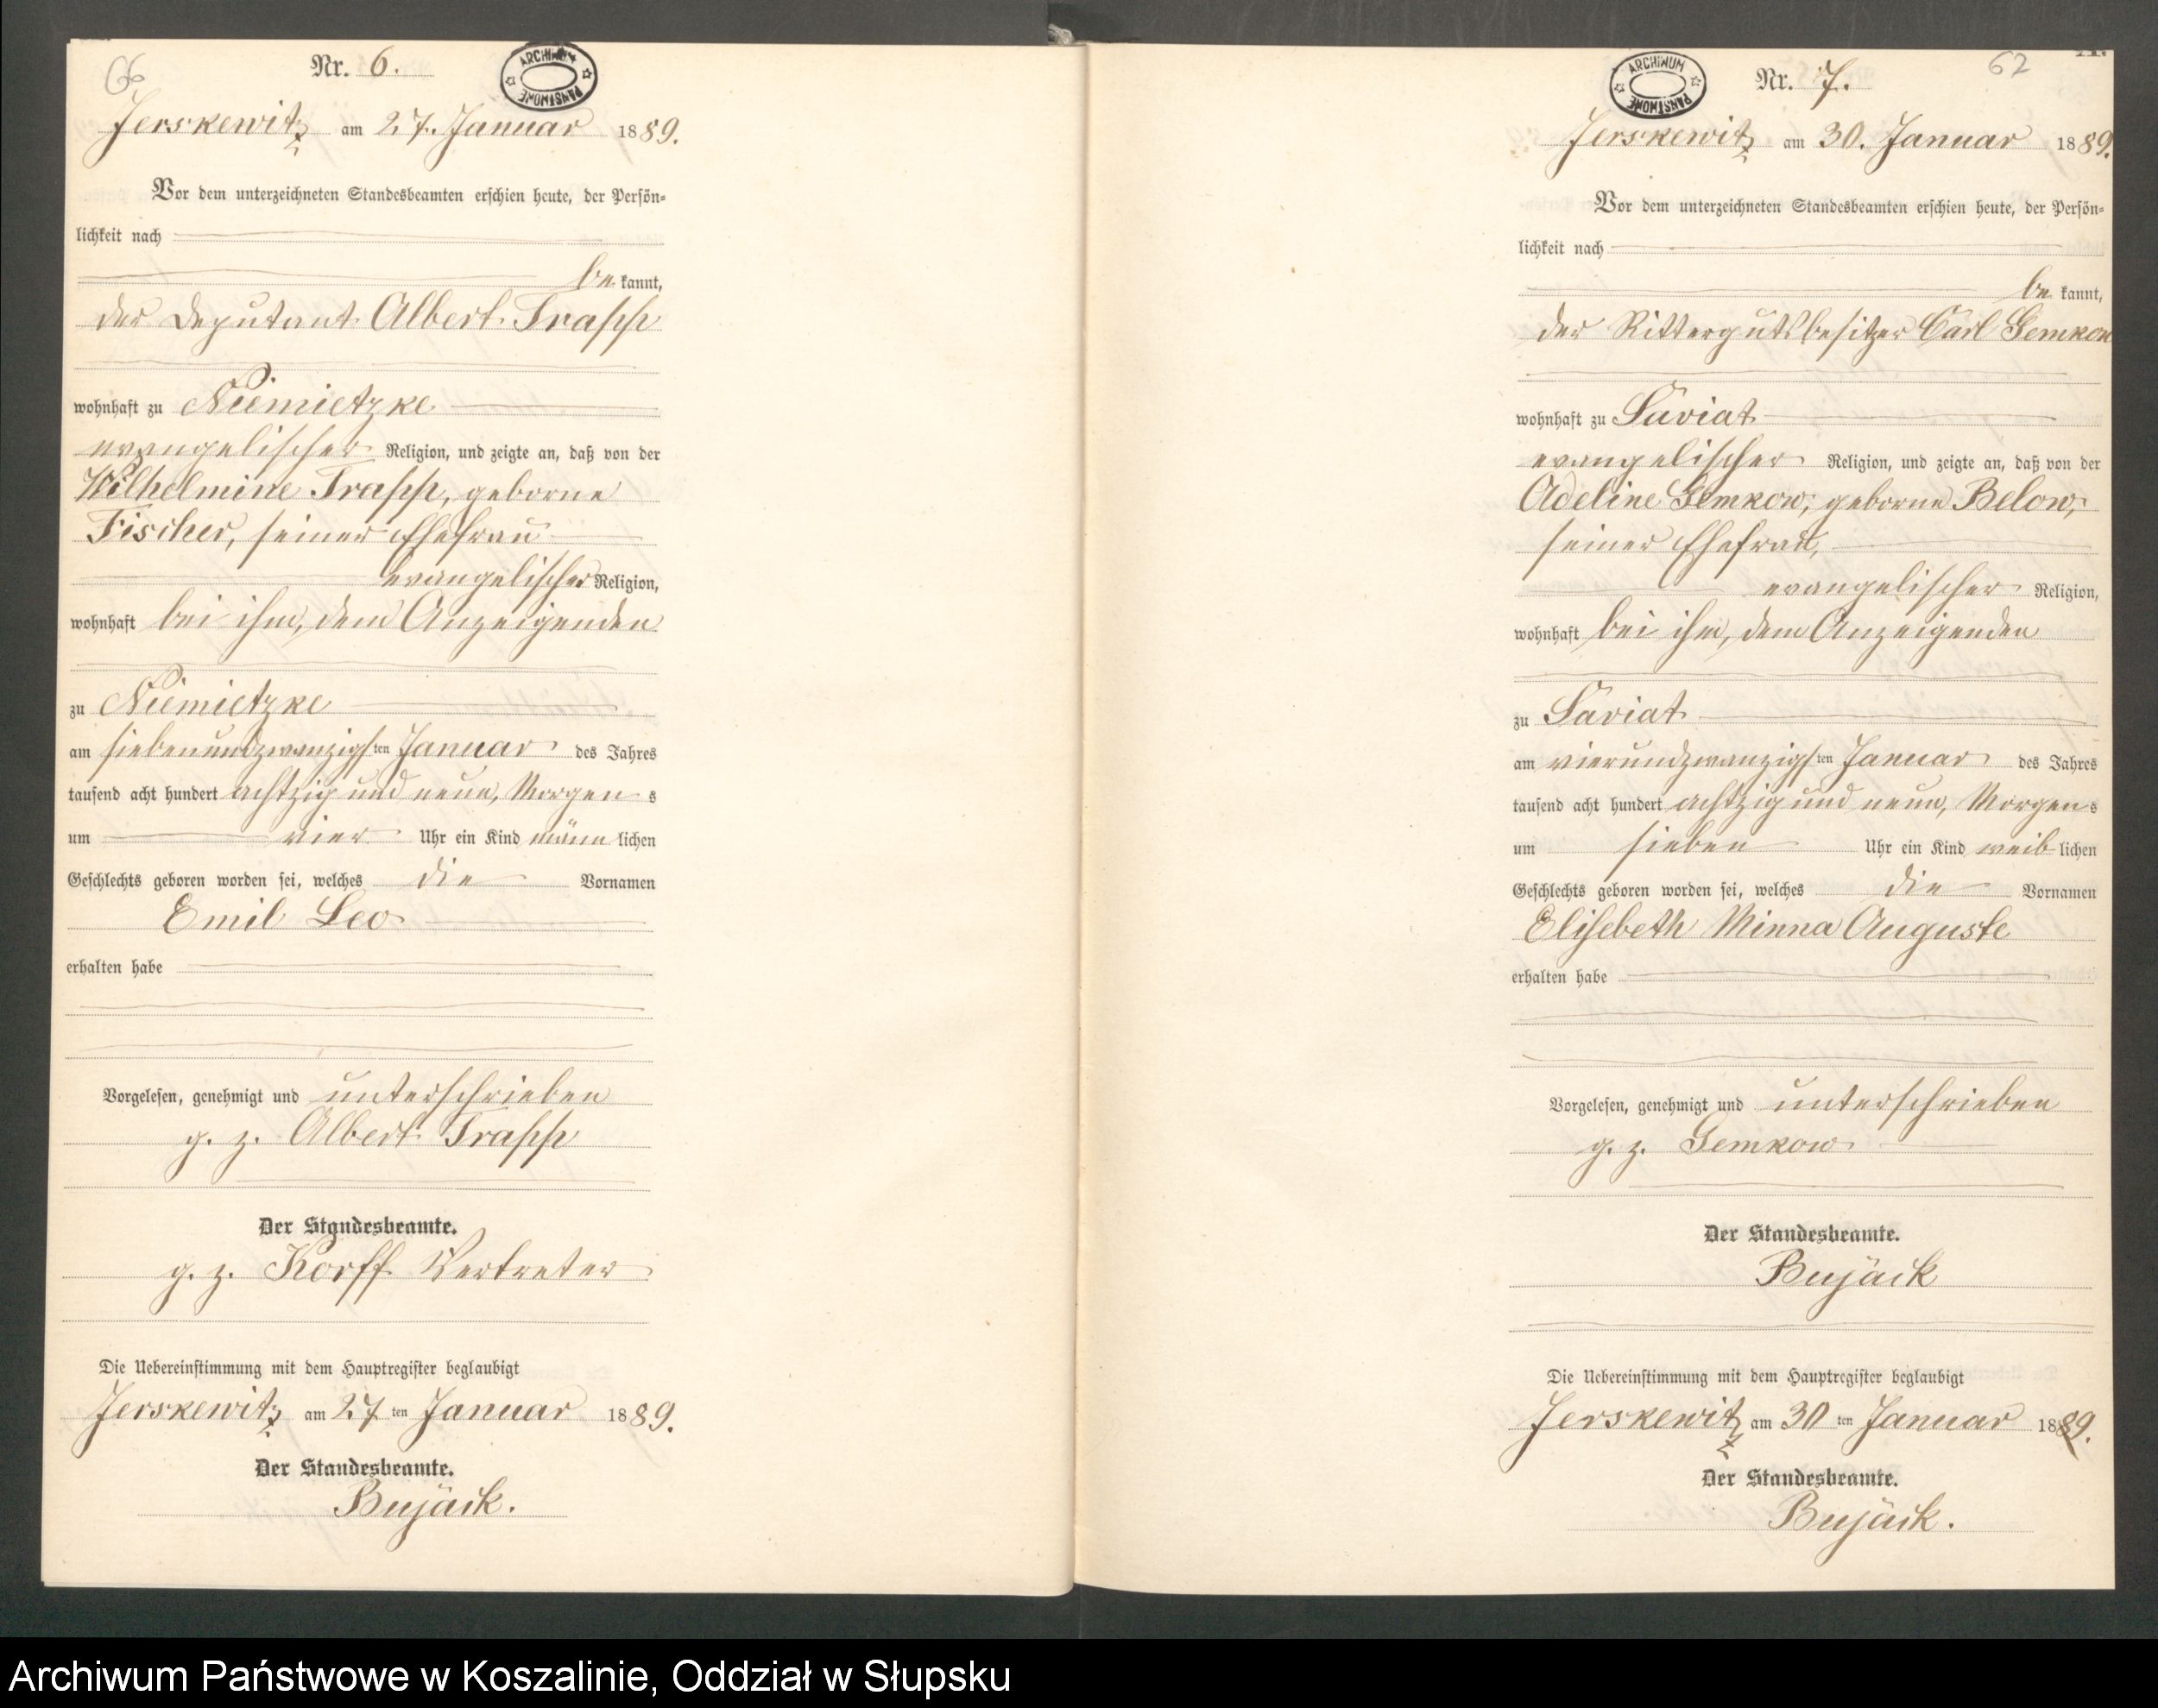 66
Nr. 6.
ARCHIWUM PAŃSTWOWE
Jerskewitz am 27. Januar 1889.
Vor dem unterzeichneten Standesbeamten erschien heute, der Persön-
lichkeit nach
be kannt,
der Deputant Albert Trapp
wohnhaft zu Niemietzke
evangelischer Religion, und zeigte an, daß von der
Wilhelmine Trapp, geborne
Fischer, seiner Ehefrau
evangelischer Religion,
wohnhaft bei ihm, dem Anzeigenden
zu Niemietzke
am siebenundzwanzigsten Januar des Jahres
tausend acht hundert achtzig und neun, Morgens
um vier Uhr ein Kind männlichen
Geschlechts geboren worden sei, welches die Vornamen
Emil Leo
erhalten habe
Vorgelesen, genehmigt und unterschrieben
g. z. Albert Trapp
Der Standesbeamte.
g. z. Korff Vertreter
Die Uebereinstimmung mit dem Hauptregister beglaubigt
Jerskewitz am 27 ten Januar 1889.
Der Standesbeamte.
Bujäck.
62
ARCHIWUM PAŃSTWOWE
Nr. 7.
Jerskewitz am 30. Januar 1889.
Vor dem unterzeichneten Standesbeamten erschien heute, der Persön-
lichkeit nach
be kannt,
der Rittergutsbesitzer Carl Gemkow
wohnhaft zu Saviat
evangelischer Religion, und zeigte an, daß von der
Adeline Gemkow, geborne Below,
seiner Ehefrau,
evangelischer Religion,
wohnhaft bei ihm, dem Anzeigenden
zu Saviat
am vierundzwanzigsten Januar des Jahres
tausend acht hundert achtzig und neun, Morgens
um sieben Uhr ein Kind weiblichen
Geschlechts geboren worden sei, welches die Vornamen
Elisebeth Minna Auguste
erhalten habe
Vorgelesen, genehmigt und unterschrieben
g. z. Gemkow
Der Standesbeamte.
Bujäck
Die Uebereinstimmung mit dem Hauptregister beglaubigt
Jerskewitz am 30 ten Januar 1889.
Der Standesbeamte.
Bujäck.
Archiwum Państwowe w Koszalinie, Oddział w Słupsku